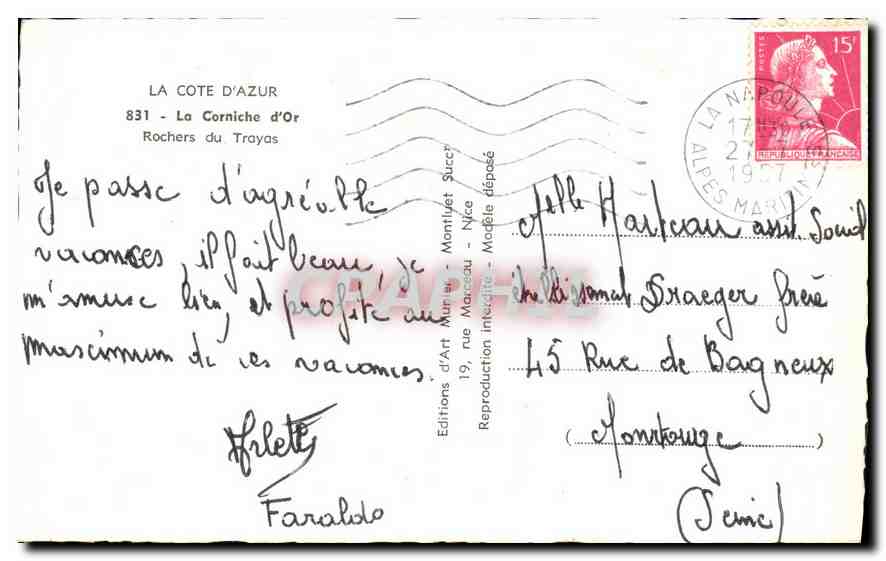 LA COTE D'AZUR
831 - La Corniche d'Or
Rochers du Trayas
Je passe d'agréable
vacances, il fait beau, je
m'amuse bien, et profite au
maximum de ces vacances.
Arlette
Faraldo
Editions d'Art Munier - Montluet Succr
19, rue Marceau - Nice
Reproduction interdite - Modèle déposé
POSTES
15F
REPUBLIQUE FRANÇAISE
LA NAPOULE
17H
27
1957
ALPES MARITIMES
CPAPHIL
Melle Marteau asst. Social
établissement Draeger frère
45 Rue de Bagneux
(Montrouge)
(Seine)